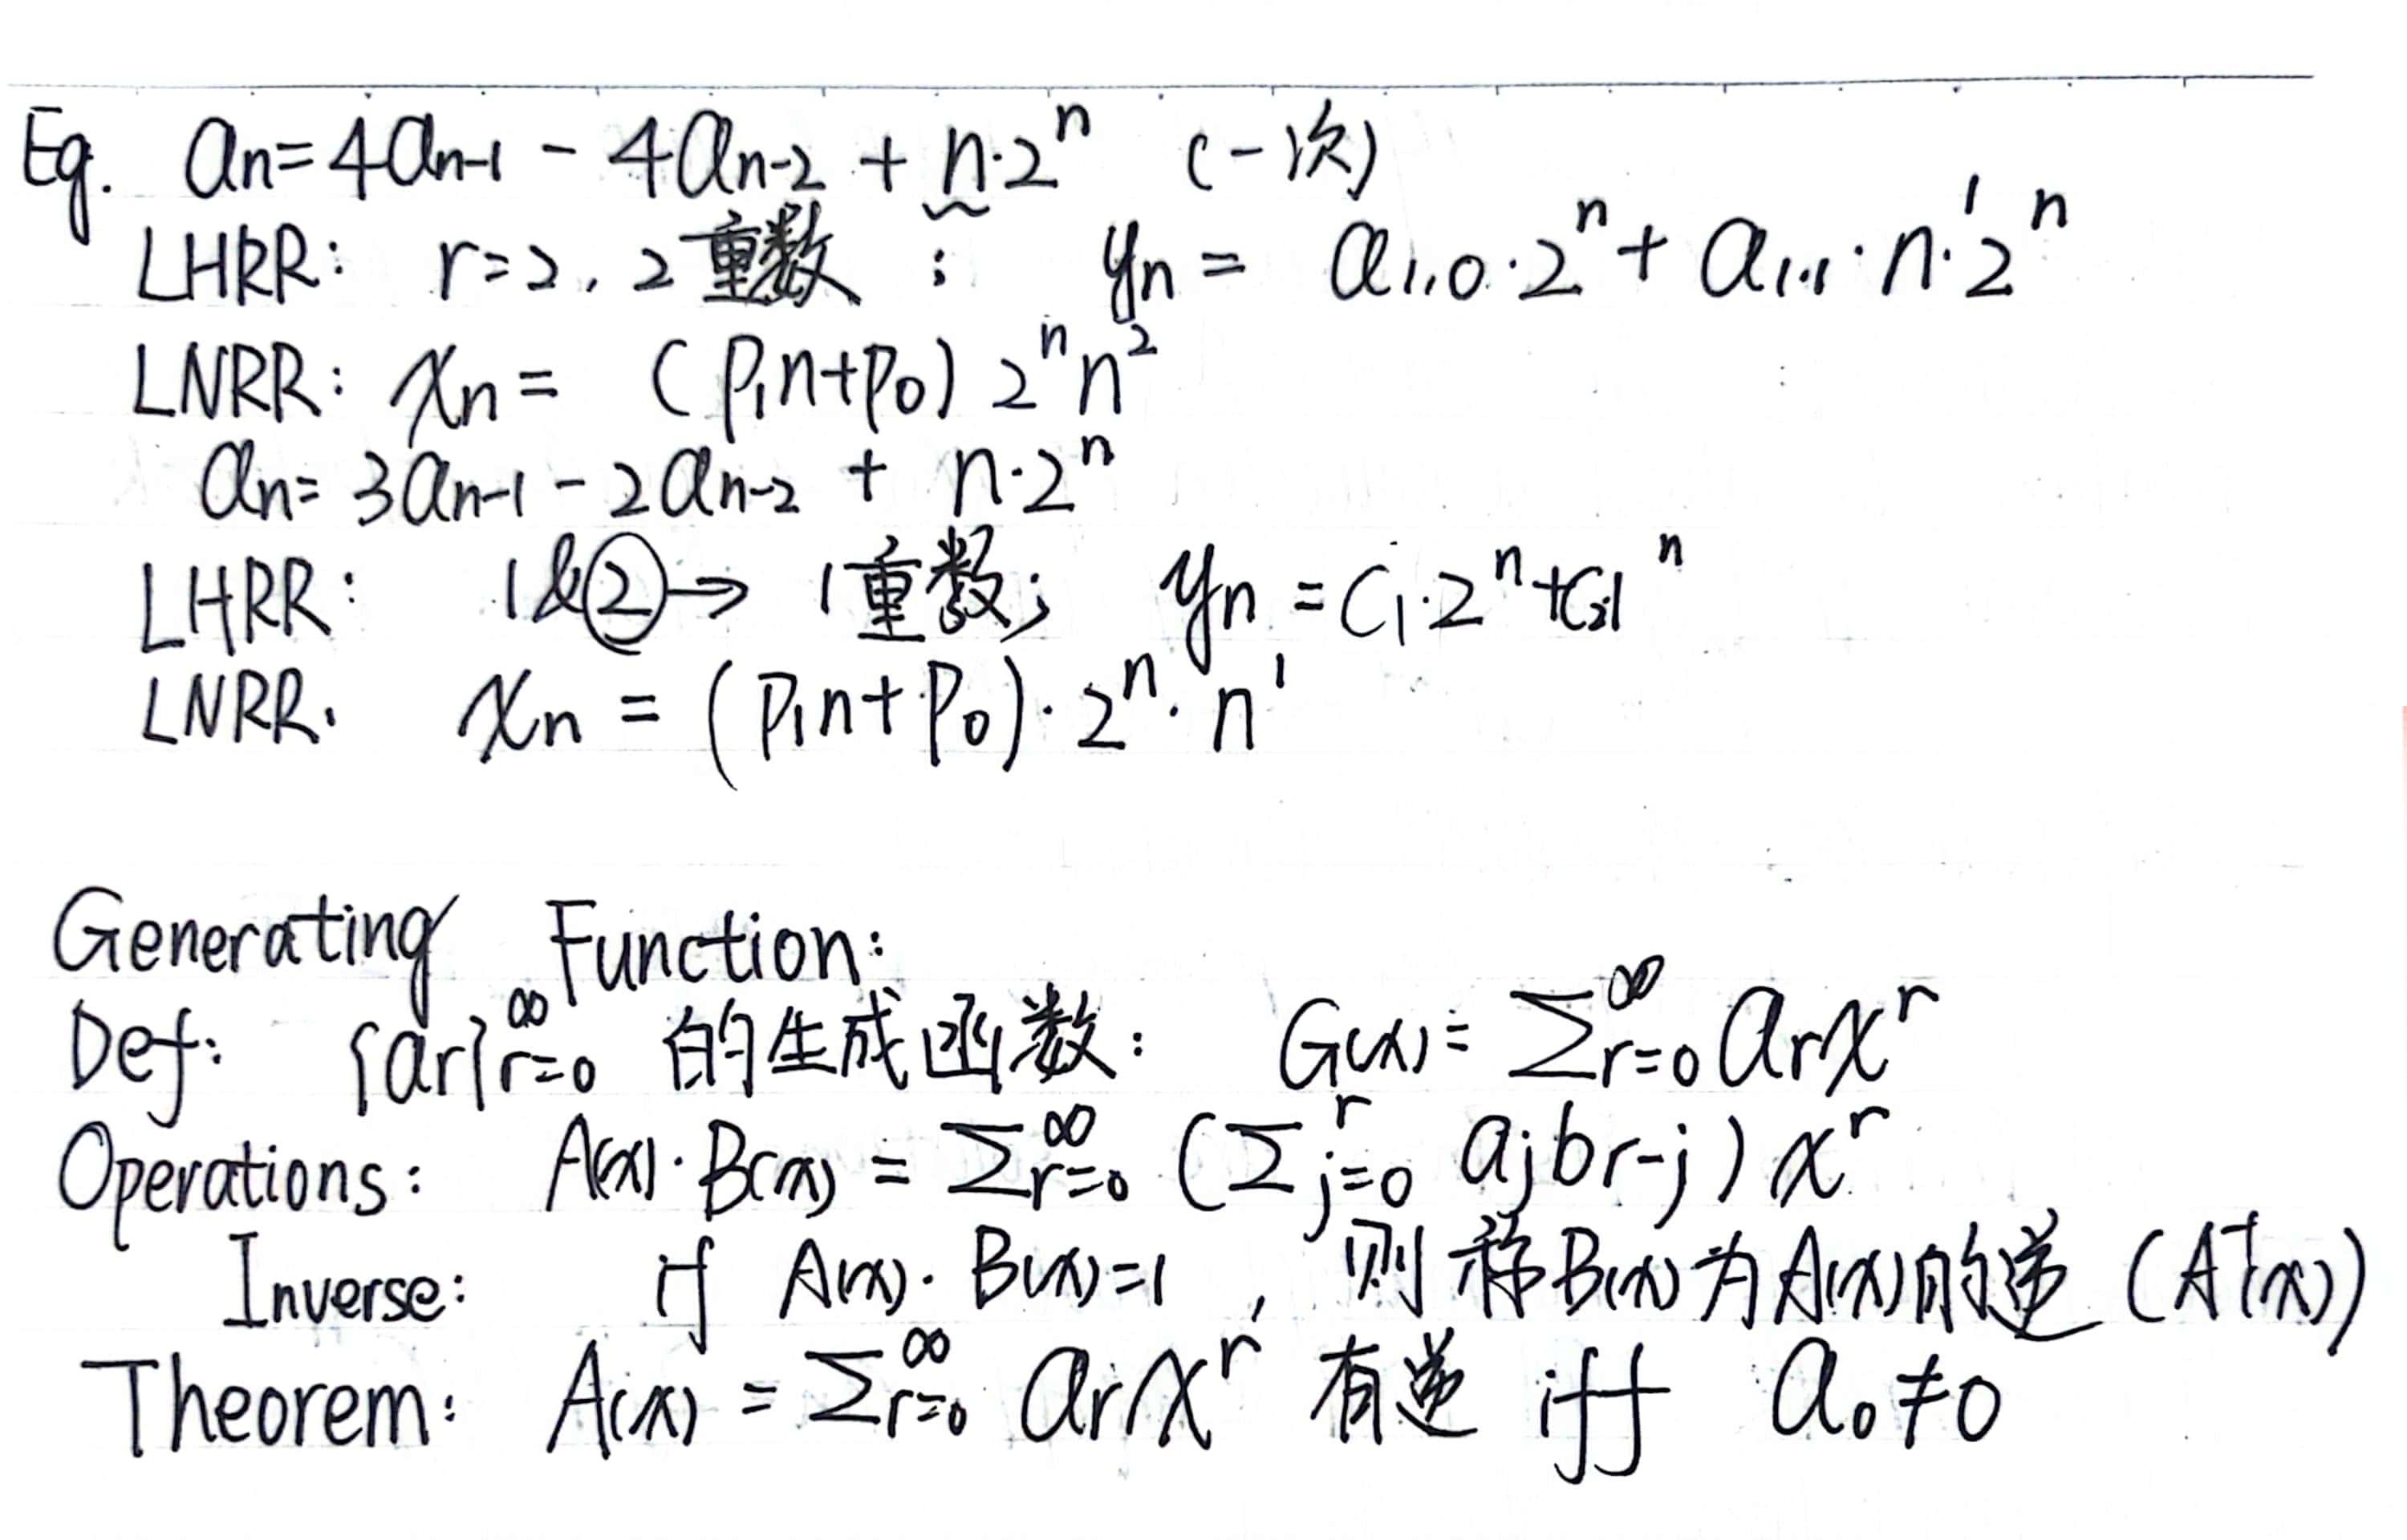 Eg. aₙ=4aₙ₋₁ - 4aₙ₋₂ + n·2ⁿ (一次)
LHRR: r=2, 2重数 ; yₙ = a₁,₀·2ⁿ + a₁,₁·n¹·2ⁿ
LNRR: xₙ = (p₁n+p₀) 2ⁿn²
aₙ= 3aₙ₋₁ - 2aₙ₋₂ + n·2ⁿ
LHRR: 1&② → 1重数; yₙ = C₁·2ⁿ+C₂1ⁿ
LNRR. xₙ = (p₁n+p₀)·2ⁿ·n¹
Generating Function:
Def: {aᵣ}∞ᵣ₌₀ 的生成函数: G(x)= Σ∞ᵣ₌₀ aᵣxʳ
Operations: A(x)·B(x) = Σ∞ᵣ₌₀ (Σʳⱼ₌₀ aⱼbᵣ₋ⱼ) xʳ
Inverse: if A(x)·B(x)=1, 则称B(x)为A(x)的逆 (A⁻¹(x))
Theorem: A(x) = Σ∞ᵣ₌₀ aᵣxʳ 有逆 iff a₀≠0